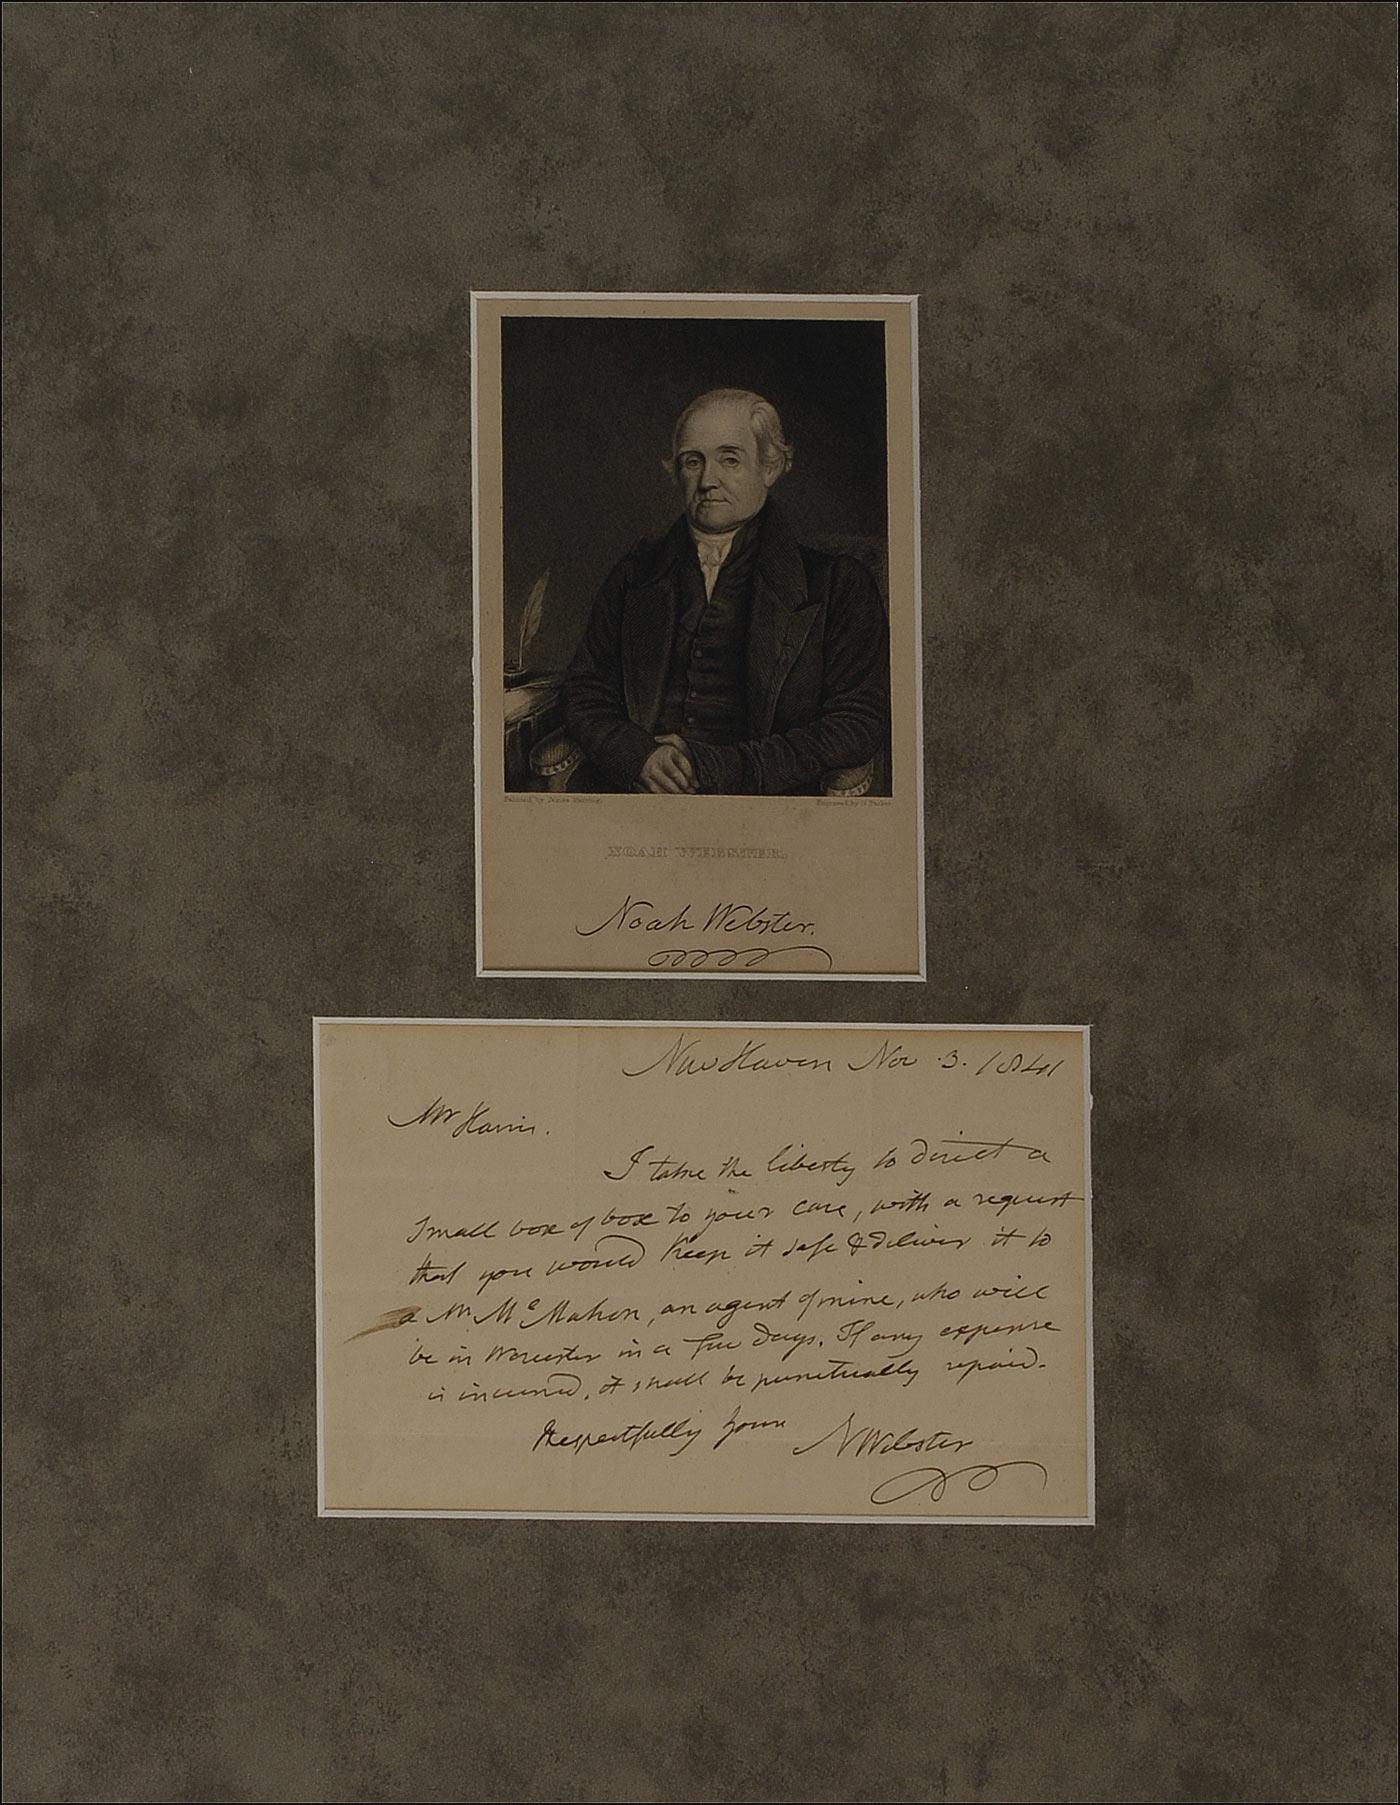 Painted by James Herring.
Engraved by G. Parker.
NOAH WEBSTER.
Noah Webster.
New Haven Nov 3. 1841
Mr Harris.
I take the liberty to direct a
small box of box to your care, with a request
that you would keep it safe & deliver it to
a Mr McMahon, an agent of mine, who will
be in Worcester in a few days. If any expense
is incurred, it shall be punctually repaid.
Respectfully yours NWebster